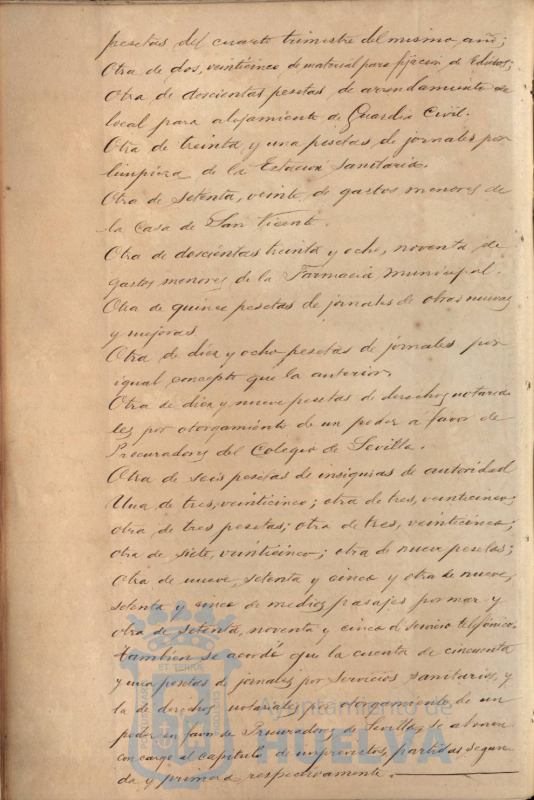 pesetas del cuarto trimestre del mismo año;
Otra de dos, veinticinco de material para fijacion de Edictos;
Otra de doscientas pesetas de arrendamiento de
local para alojamiento de Guardia Civil.
Otra de treinta y una pesetas de jornales por
limpieza de la Estacion Sanitaria.
Otra de setenta, veinte, de gastos menores de
la Casa de San Vicente.
Otra de doscientas treinta y ocho, noventa de
gastos menores de la Farmacia Municipal.
Otra de quince pesetas de jornales de obras nuevas
y mejoras
Otra de diez y ocho pesetas de jornales por
igual concepto que la anterior.
Otra de diez y nueve pesetas de derechos notaria-
les por otorgamiento de un poder á favor de
Procuradores del Colegio de Sevilla.
Otra de seis pesetas de insignias de autoridad
Una de tres, veinticinco; otra de tres, veinticinco;
otra de tres pesetas; otra de tres, veinticinco;
otra de siete, veinticinco; otra de nueve pesetas;
otra de nueve, setenta y cinco y otra de nueve,
setenta y cinco de medios pasajes por mar y
otra de setenta, noventa y cinco de servicio telefónico.
Tambien se acordó que la cuenta de cincuenta
y una pesetas de jornales por servicios sanitarios, y
la de derechos notariales por otorgamiento de un
poder en favor de Procuradores de Sevilla, se abonen
con cargo al capitulo de imprevistos, partidas segun-
da y primera respectivamente.
Ayuntamiento de
HUELVA
PORTUS MARIS
ET TERRÆ
CUSTODIA